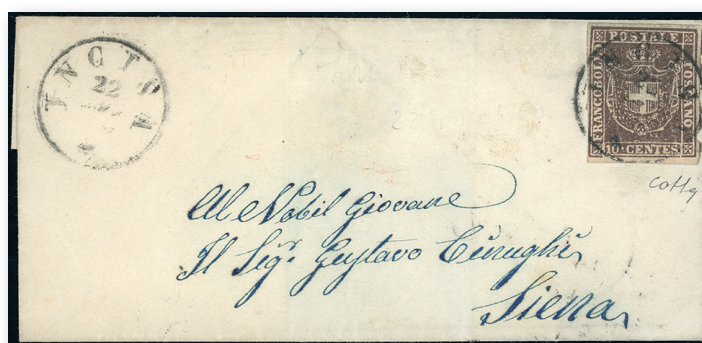 INCISA
22
FRANCOBOLLO
POSTALE
TOSCANO
10 CENTES
Al Nobil Giovane
Il Sigr. Gustavo
Siena